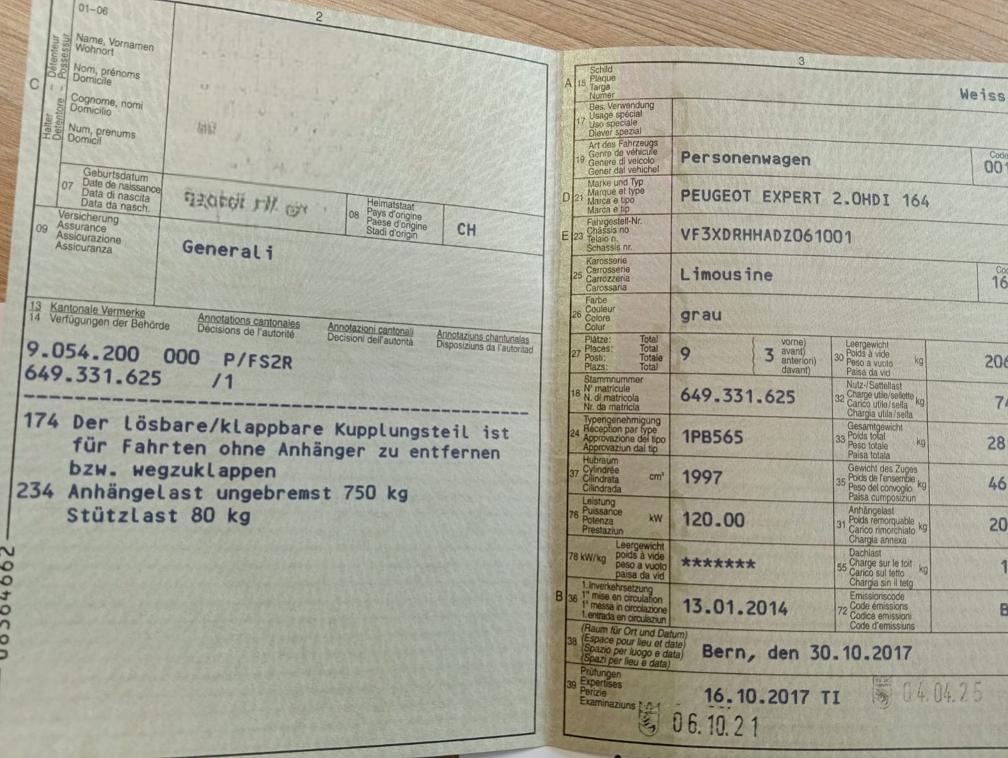 2
01-06
C
Halter Détenteur
Detentore - Possessur
Name, Vornamen
Wohnort
Nom, prénoms
Domicile
Cognome, nomi
Domicilio
Num, prenums
Domicil
07
Geburtsdatum
Date de naissance
Data di nascita
Data da nasch.
08
Heimatstaat
Pays d'origine
Paese d'origine
Stadi d'origin
CH
09
Versicherung
Assurance
Assicurazione
Assicuranza
Generali
13 Kantonale Vermerke
14 Verfügungen der Behörde
Annotations cantonales
Décisions de l'autorité
Annotazioni cantonali
Decisioni dell'autorità
Annotaziuns chantunalas
Disposiziuns da l'autoritad
9.054.200 000 P/FS2R
649.331.625 /1
174 Der lösbare/klappbare Kupplungsteil ist
für Fahrten ohne Anhänger zu entfernen
bzw. wegzuklappen
234 Anhängelast ungebremst 750 kg
Stützlast 80 kg
3
A 15
Schild
Plaque
Targa
Numer
Weiss
17
Bes. Verwendung
Usage spécial
Uso speciale
Diever spezial
19
Art des Fahrzeugs
Genre de véhicule
Genere di veicolo
Gener dal vehichel
Personenwagen
Code
001
D 21
Marke und Typ
Marque et type
Marca e tipo
Marca e tip
PEUGEOT EXPERT 2.0HDI 164
E 23
Fahrgestell-Nr.
Châssis no
Telaio n.
Schassis nr.
VF3XDRHHADZ061001
25
Karosserie
Carrosserie
Carrozzeria
Carossaria
Limousine
16
26
Farbe
Couleur
Colore
Colur
grau
27
Plätze: Total
Places: Total
Posti: Totale
Plazs: Total
9
3
vorne)
avant)
anteriori)
davant)
30
Leergewicht
Poids à vide
Peso a vuoto
Paisa da vid
kg
206
18
Stammnummer
N° matricule
N. di matricola
Nr. da matricla
649.331.625
32
Nutz-/Sattellast
Charge utile/sellette
Carico utile/sella
Chargia utila/sella
kg
24
Typengenehmigung
Réception par type
Approvazione del tipo
Approvaziun dal tip
1PB565
33
Gesamtgewicht
Poids total
Peso totale
Paisa totala
kg
28
37
Hubraum
Cylindrée
Cilindrata
Cilindrada
cm³
1997
35
Gewicht des Zuges
Poids de l'ensemble
Peso del convoglio
Paisa cumposiziun
kg
46
76
Leistung
Puissance
Potenza
Prestaziun
kW
120.00
31
Anhängelast
Poids remorquable
Carico rimorchiato
Chargia annexa
kg
20
78 kW/kg
Leergewicht
poids à vide
peso a vuoto
paisa da vid
*******
55
Dachlast
Charge sur le toit
Carico sul tetto
Chargia sin il tetg
kg
1
B 36
1. Inverkehrsetzung
1re mise en circulation
1a messa in circolazione
1. entrada en circulaziun
13.01.2014
72
Emissionscode
Code émissions
Codice emissioni
Code d'emissiuns
B
38
(Raum für Ort und Datum)
(Espace pour lieu et date)
(Spazio per luogo e data)
(Spazi per lieu e data)
Bern, den 30.10.2017
39
Prüfungen
Expertises
Perizie
Examinaziuns
16.10.2017 TI
04.04.25
06.10.21